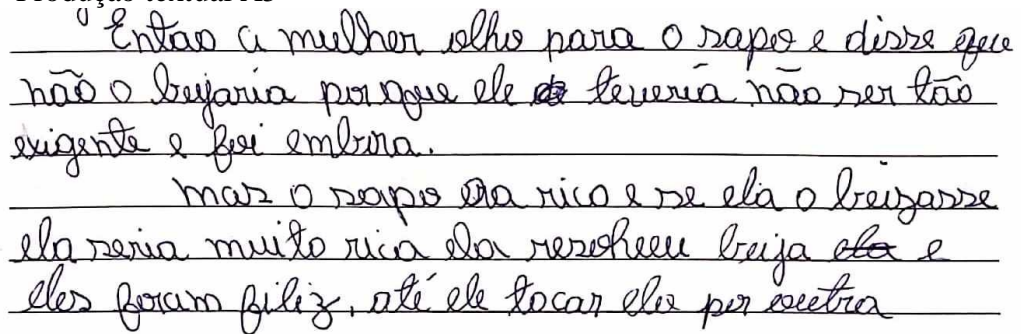 Produção textual A5
Entao a mulher olho para o sapo e disse que
não o bejaria por que ele teveria não ser tão
exigente e foi embora.
mas o sapo era rico e se ela o breizasse
ela seria muito rica ela resolheeu beija ela e
eles foram filiz, até ele tocar ela por outra